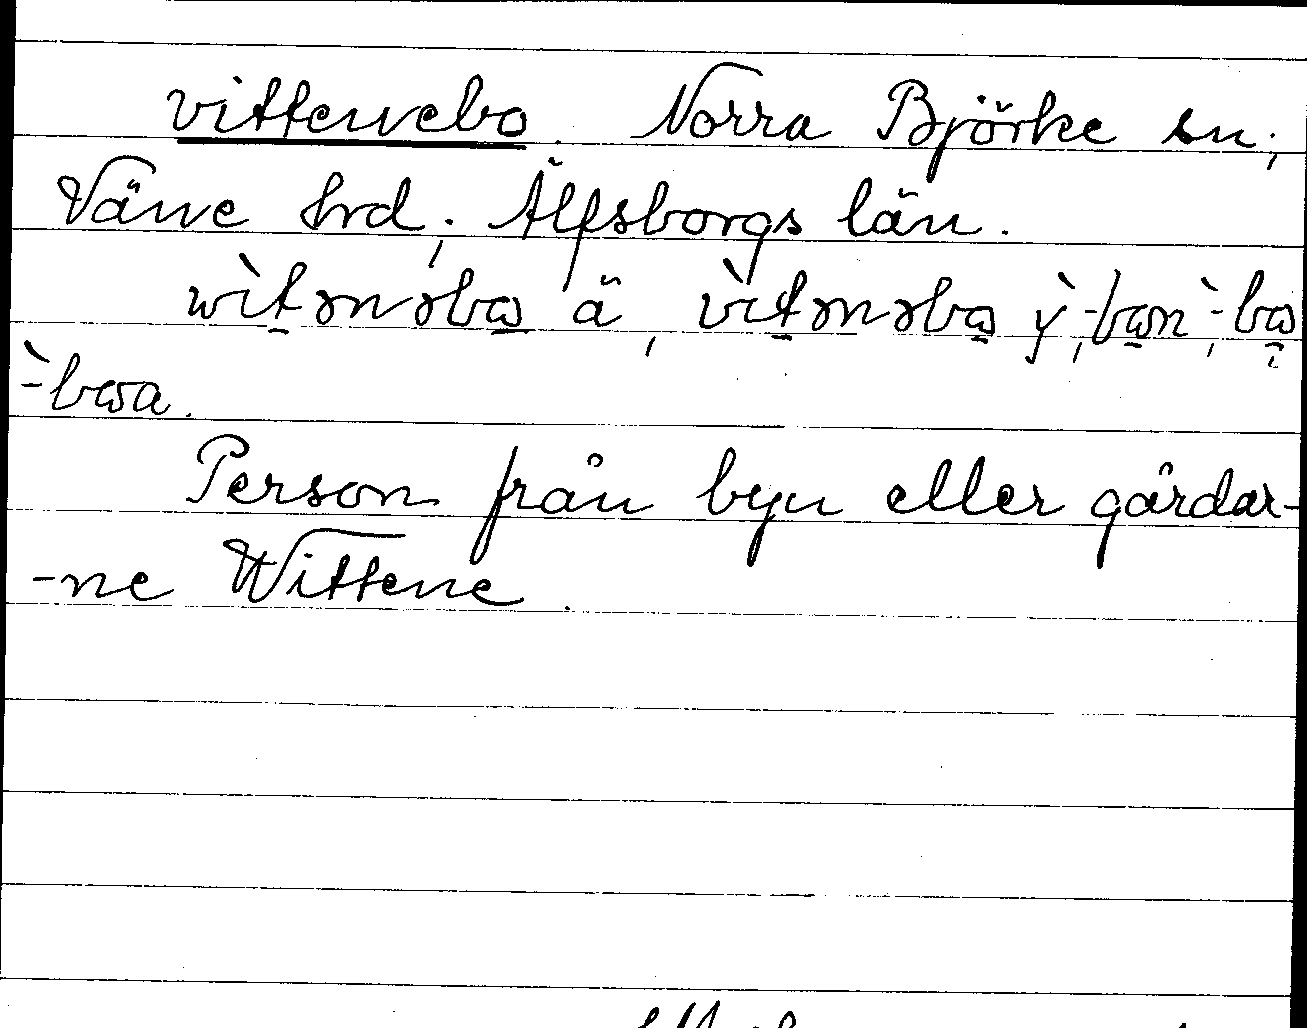 vittenebo. Norra Björke sn,
Väne hrd, Älfsborgs län.
wìtənəbɷ ä, vìtənəbɷ y, -bɷn, -bɷ,
-bɷa.
Person från byn eller gårdar-
-ne Wittene.